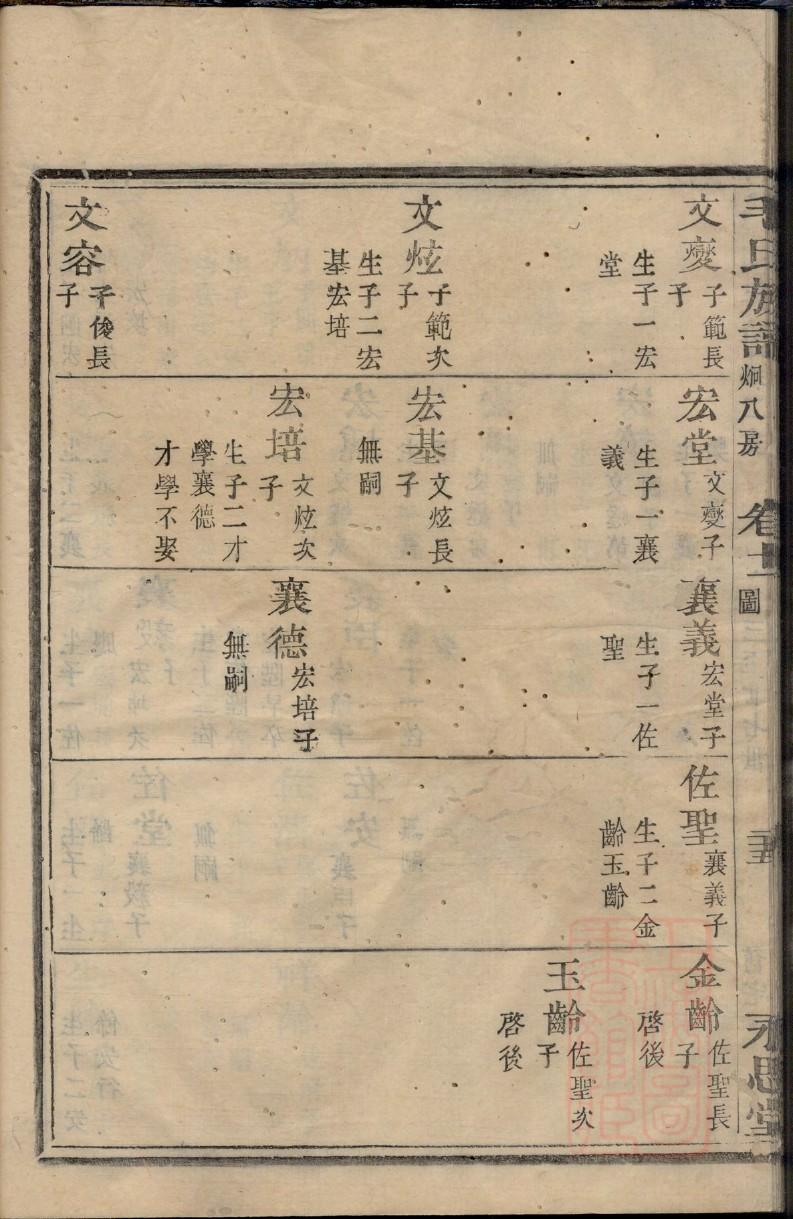 毛氏族譜
炯八房
卷十二
圖
三五
永思堂
文燮
子範長
子
生子一宏
堂
文炫
子範次
子
生子二宏
基宏培
文容
子俊長
子
宏堂
文燮子
生子一襄
義
宏基
文炫長
子
無嗣
宏培
文炫次
子
生子二才
學襄德
才學不娶
襄義
宏堂子
生子一佐
聖
襄德
宏培子
無嗣
佐聖
襄義子
生子二金
齡玉齡
金齡
佐聖長
子
啓後
玉齡
佐聖次
子
啓後